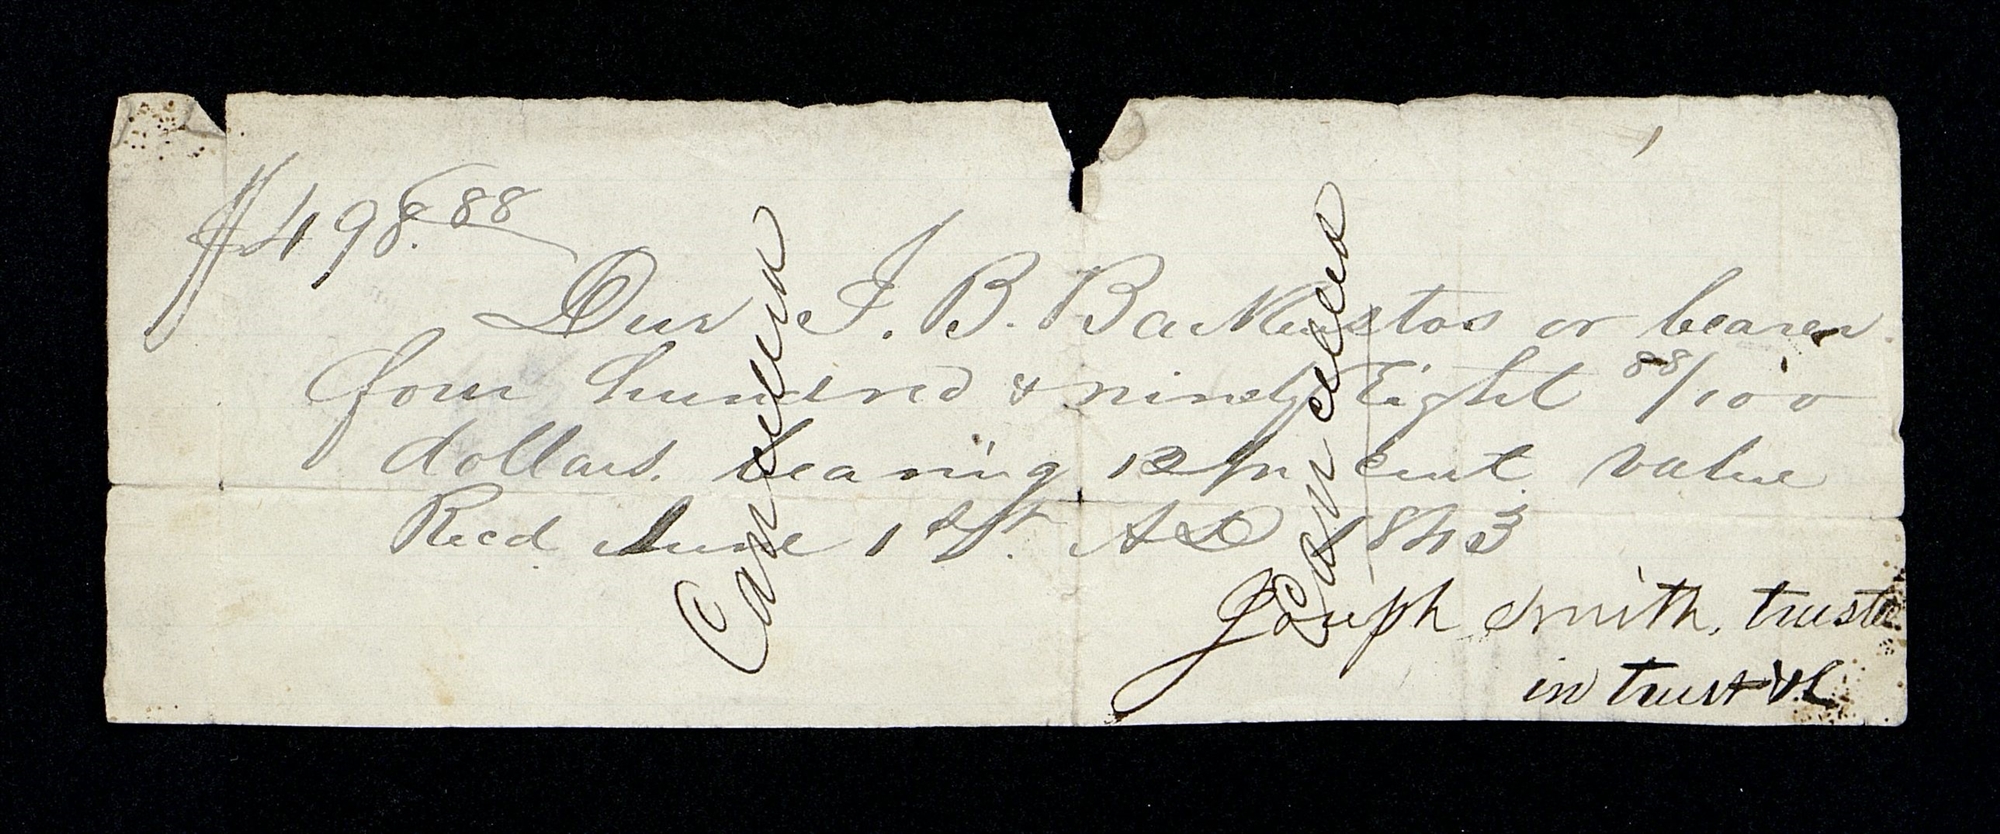 $498.88
Due J. B. Backenstos or bearer
four hundred & ninety Eight 88/100
dollars. bearing 12 pr cent value
Recd June 1st. AD 1843
Joseph Smith, trustee
in trust &c
Cancelled
Cancelled